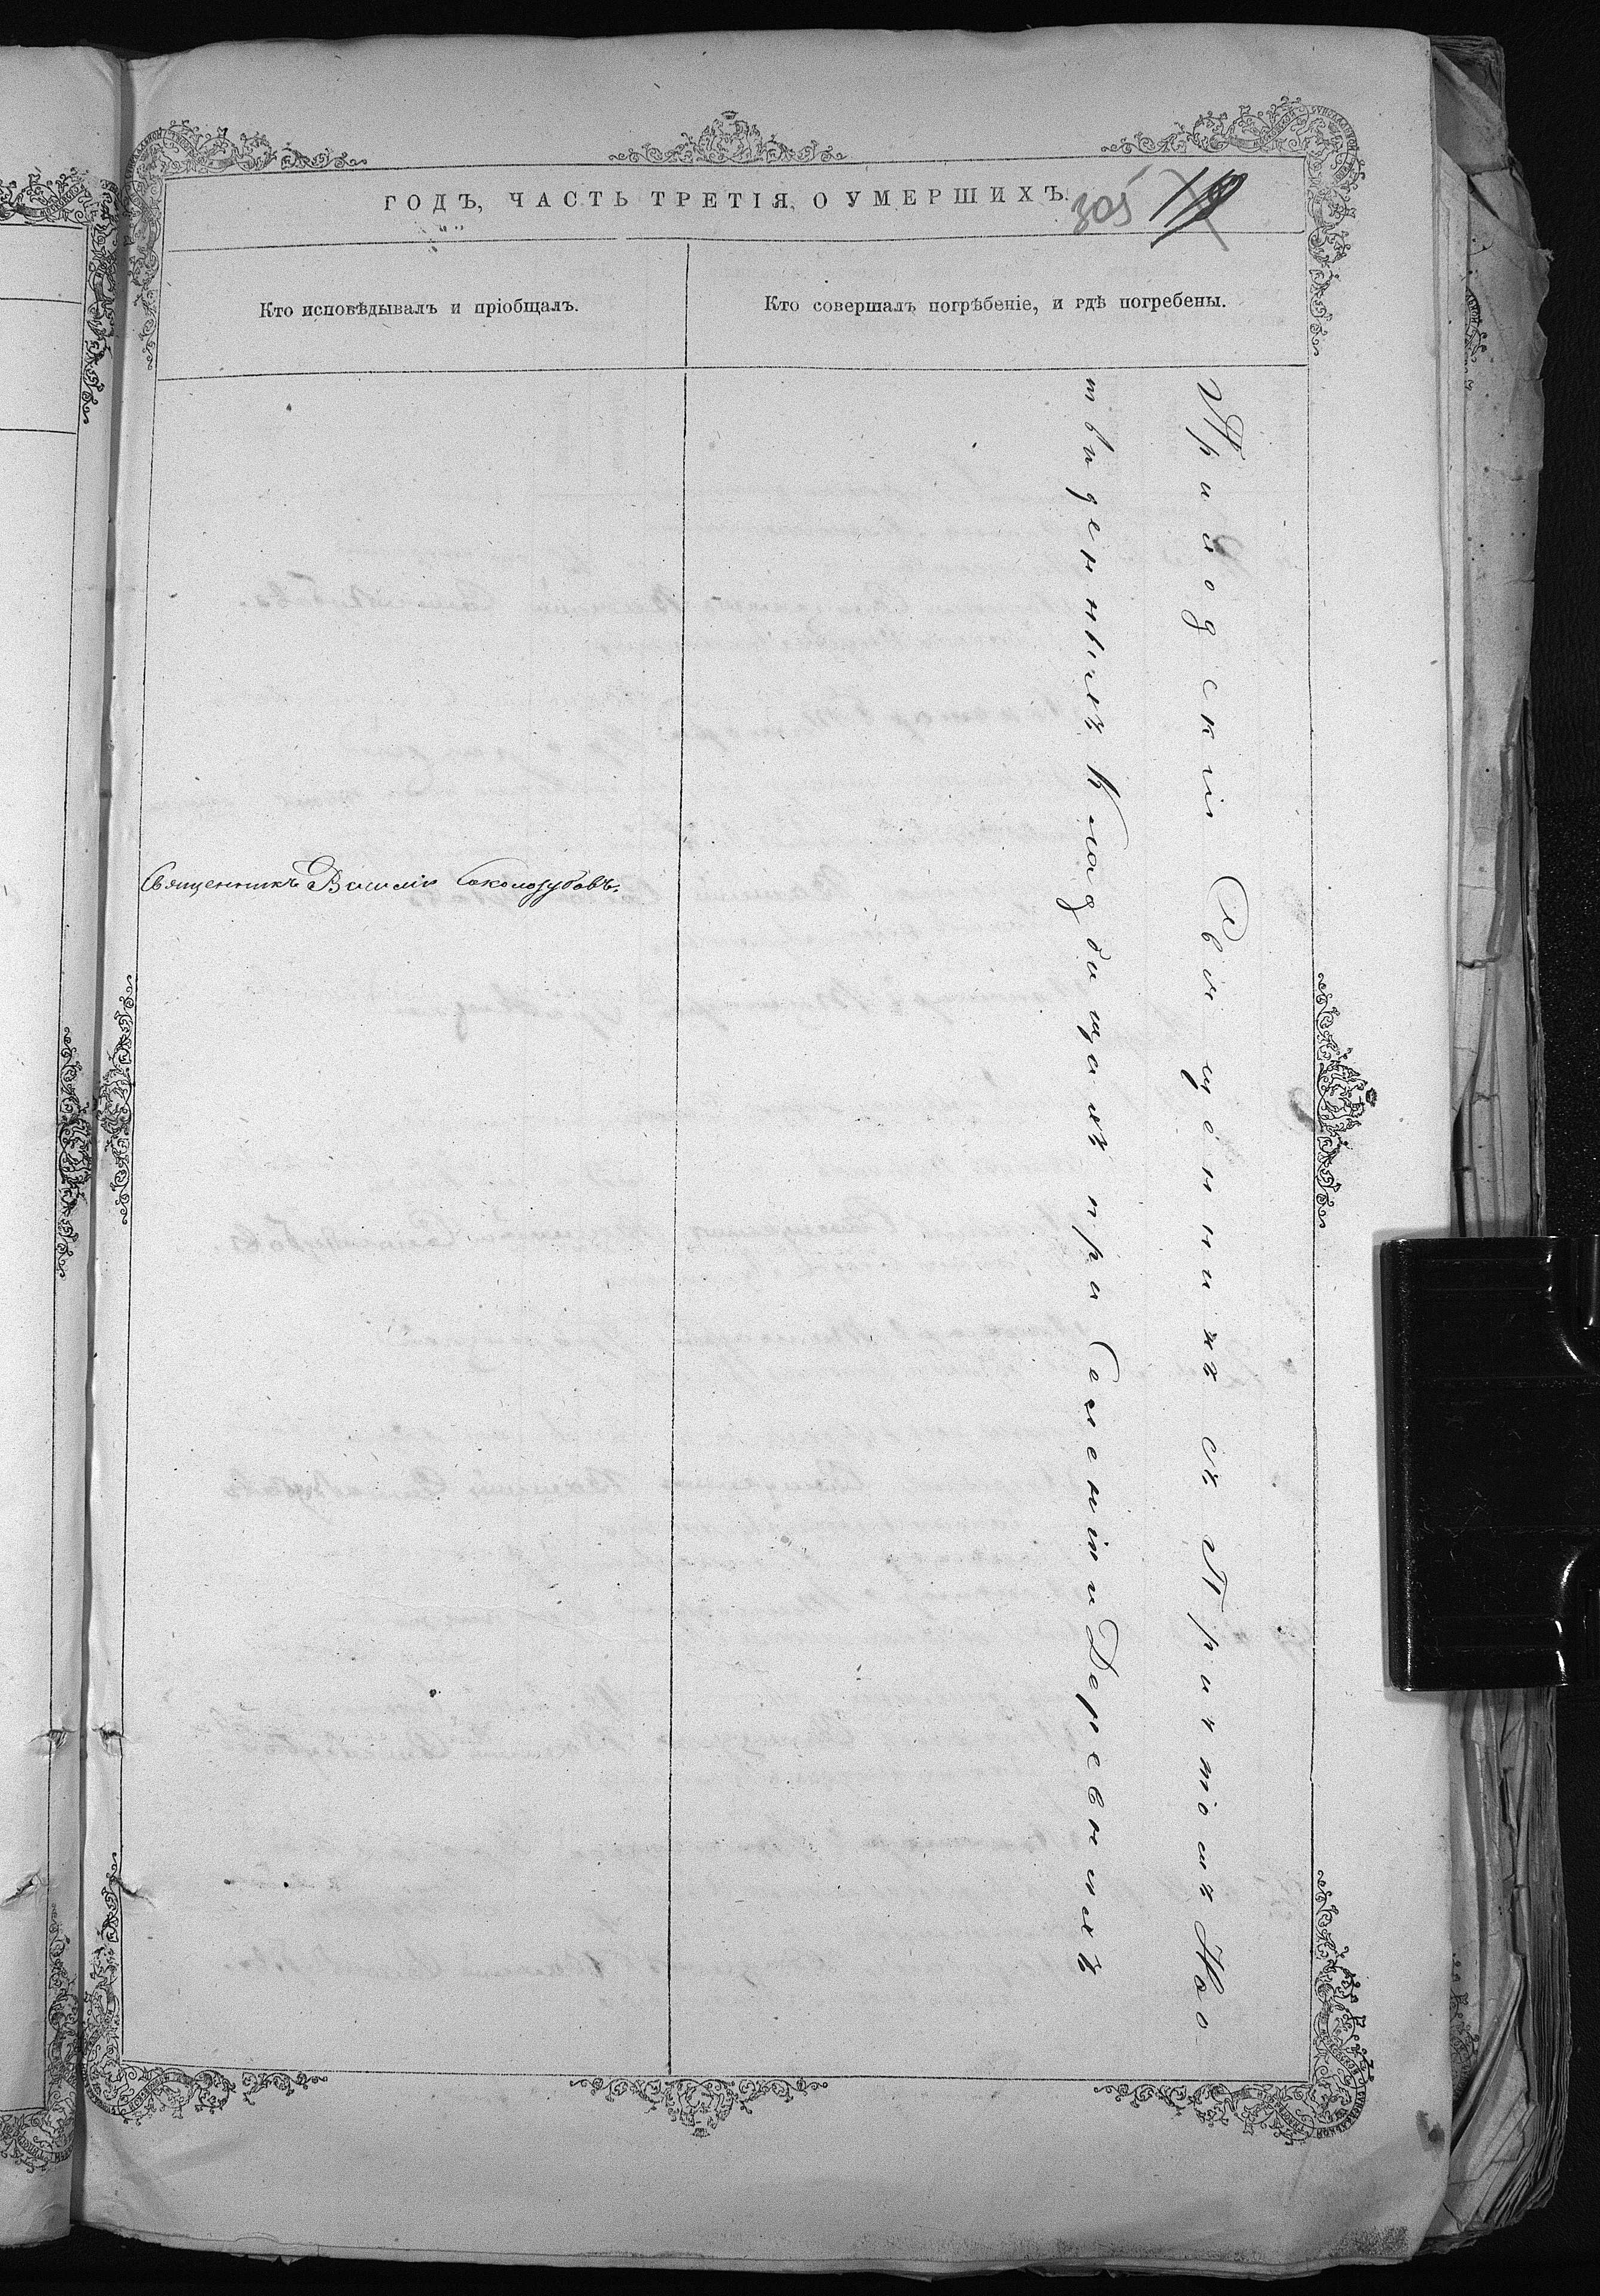 ГОДЪ, ЧАСТЬ ТРЕТІЯ, О УМЕРШИХЪ.
305
Кто исповѣдывалъ и пріобщалъ.
Кто совершалъ погрѣбеніе, и гдѣ погребены.
Священникъ Василій Соколозубовъ.
Приходскій Священникъ съ Причтомъ На о
твиденныхъ Кладбищахъ при Селеніи и Деревняхъ